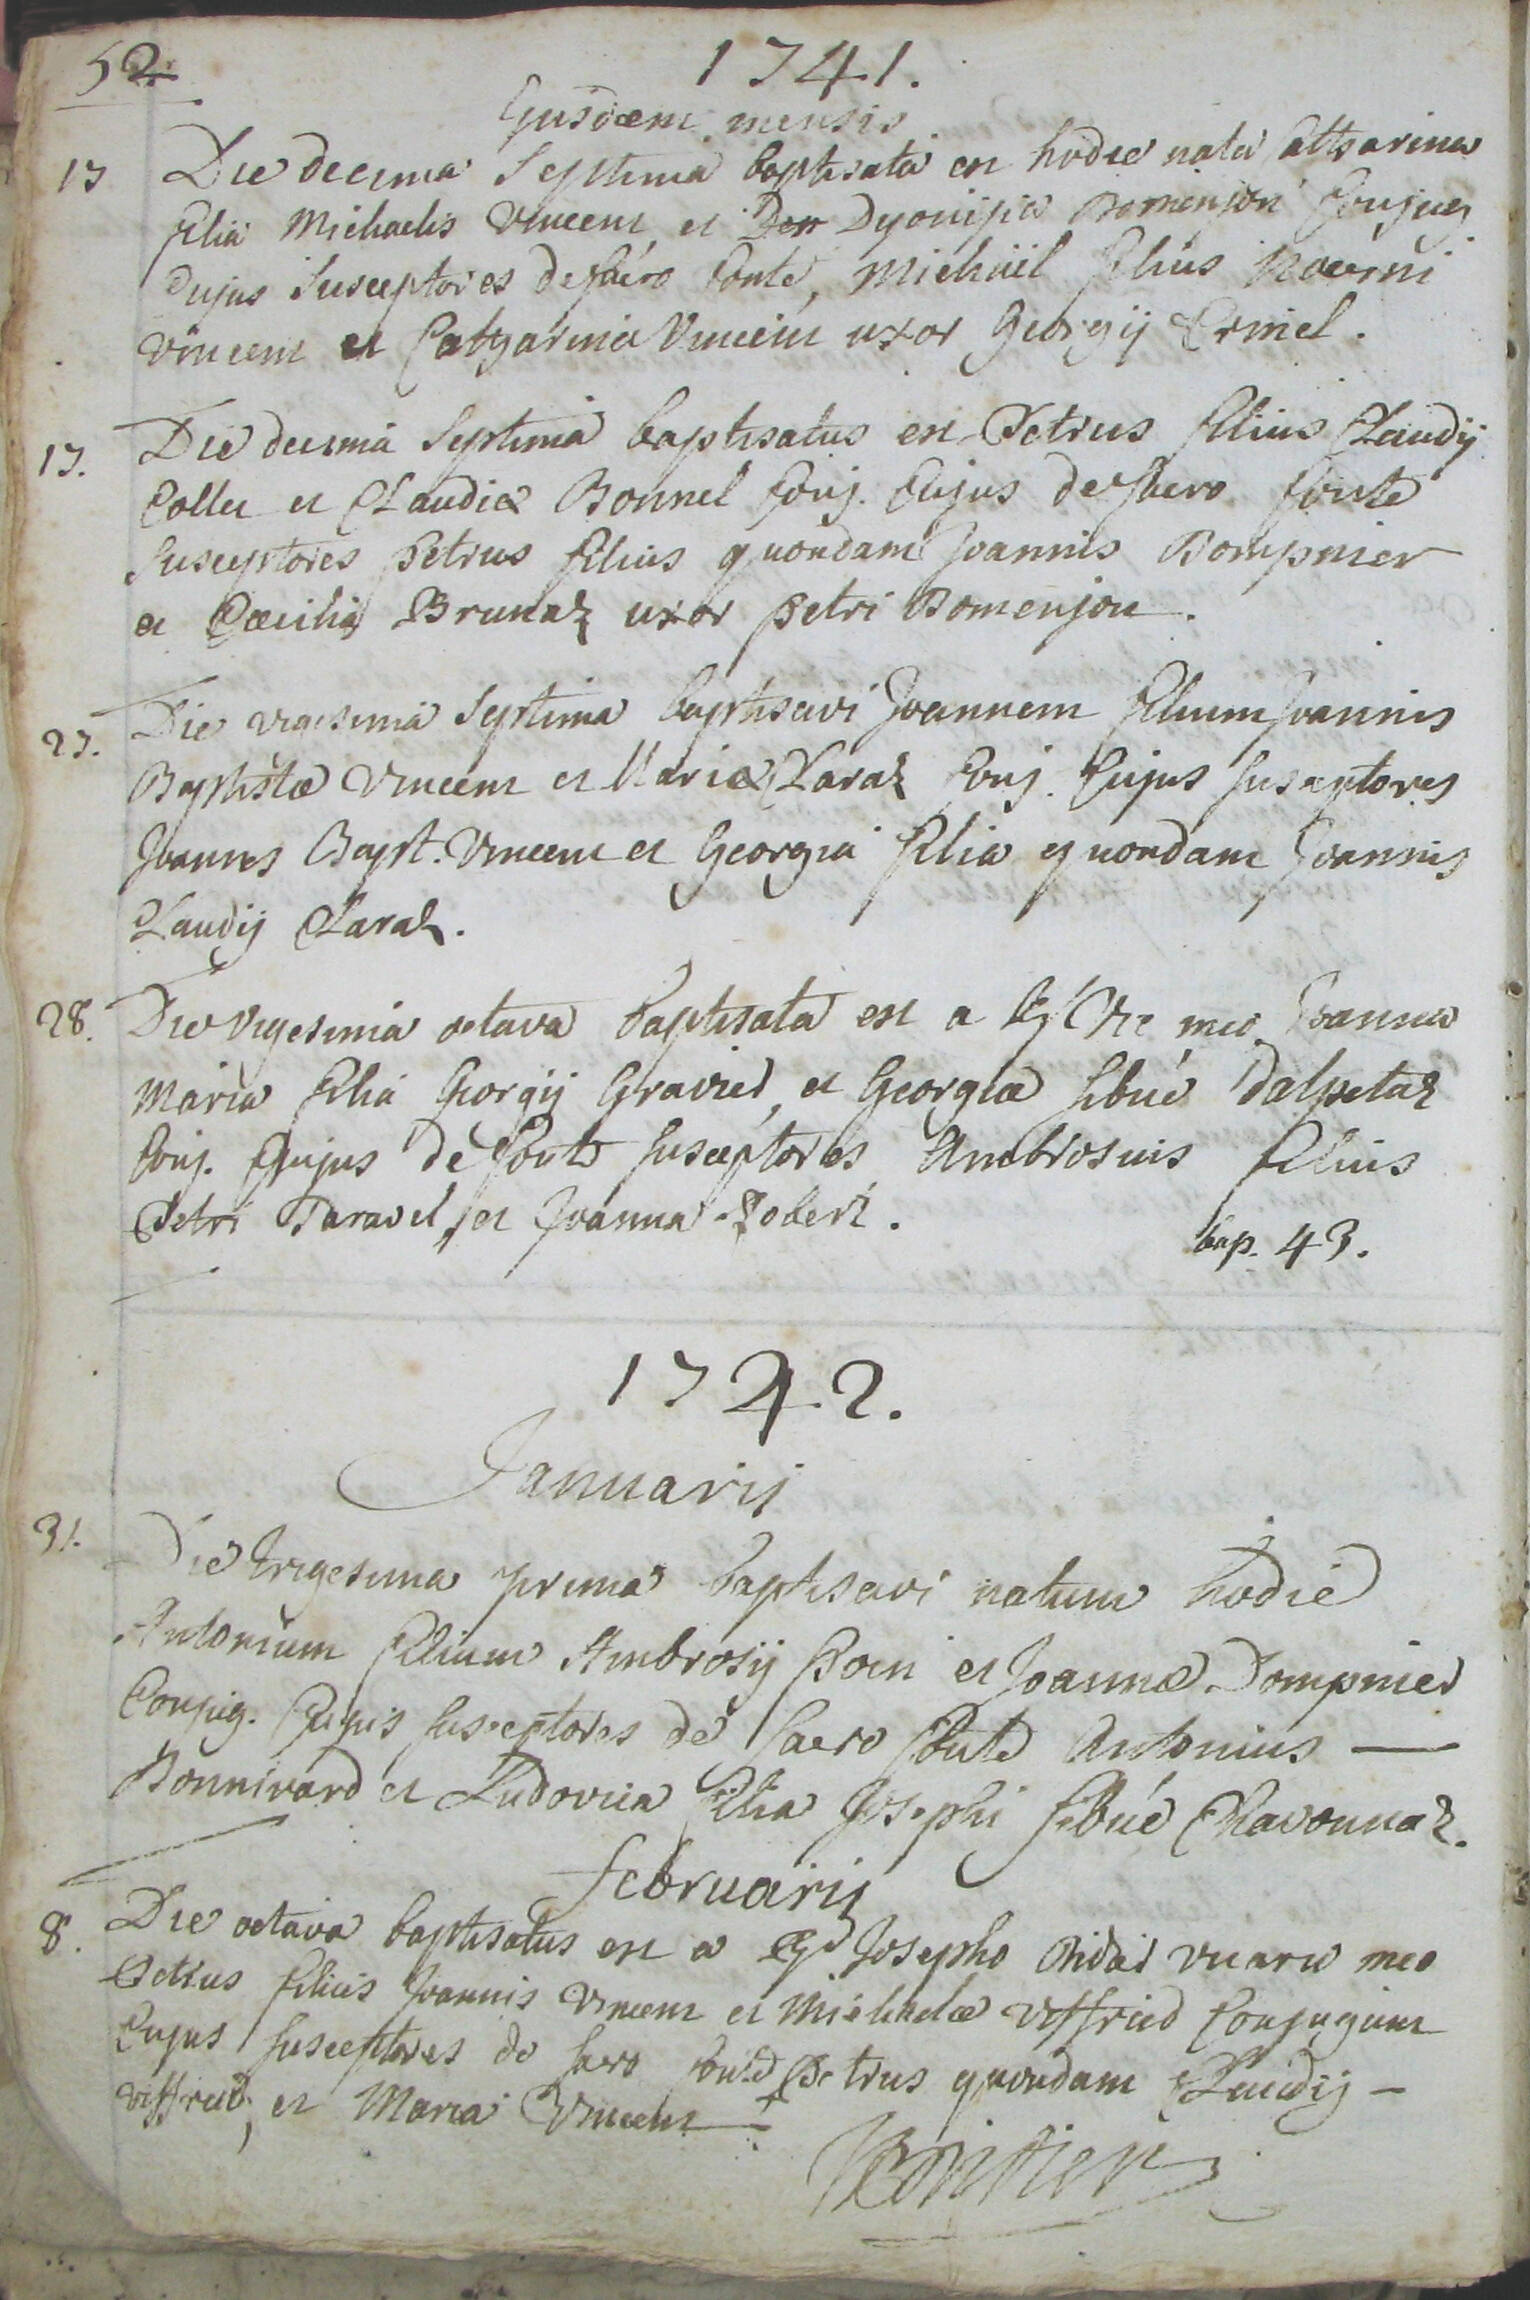 52
1741.
Ejusdem mensis
17 Die decima septima baptisata est hodie nata Catharina
filia Michaelis Vincent et Den Dyonisia Bomenjon conjug
Cujus susceptores de sacro fonte, Michäel filius
Vincent et Catharina Vincent uxor Georgij Ermel.
17. Die decima septima baptisatus est Petrus filius Claudij
Collet et Claudiæ Bonnel conj. Cujus de sacro fonte
susceptores Petrus filius quondam Joannis Dompnier
et Cæcilia Brunaz uxor Petri Bomenjon.
27. Die vigesima septima baptisavi Joannem filium Joannis
Baptistæ Vincent et Mariæ Claraz conj. Cujus susceptores
Joannes Bapt. Vincent et Georgia filia quondam Joannis
Claudij Claraz.
28. Die vigesima octava baptisata est a Rdo Vic meo Joanna
Maria filia Georgij Gravier, et Georgiæ sibué Dalpetaz
conj. Cujus de fonte susceptores Ambrosius filius
Petri Taravel, et Joanna Robert.
bap. 43.
1742.
Januarij
31. Die trigesima prima baptisavi natum hodie
Antonium filium Ambrosij Boen et Joannæ Dompnier
Conjug. Cujus susceptores de sacro fonte Antonius —
Bonnivard et Ludovica filia Josephi sibué Chavonnaz.
februarij
8. Die octava baptisatus est a Rdo Josepho Didier vicario meo
Petrus filius Joannis Vincent et Michaelæ Viffred Conjugum
Cujus susceptores de sacro fonte Petrus quondam Claudij —
Viffred, et Maria Vincent